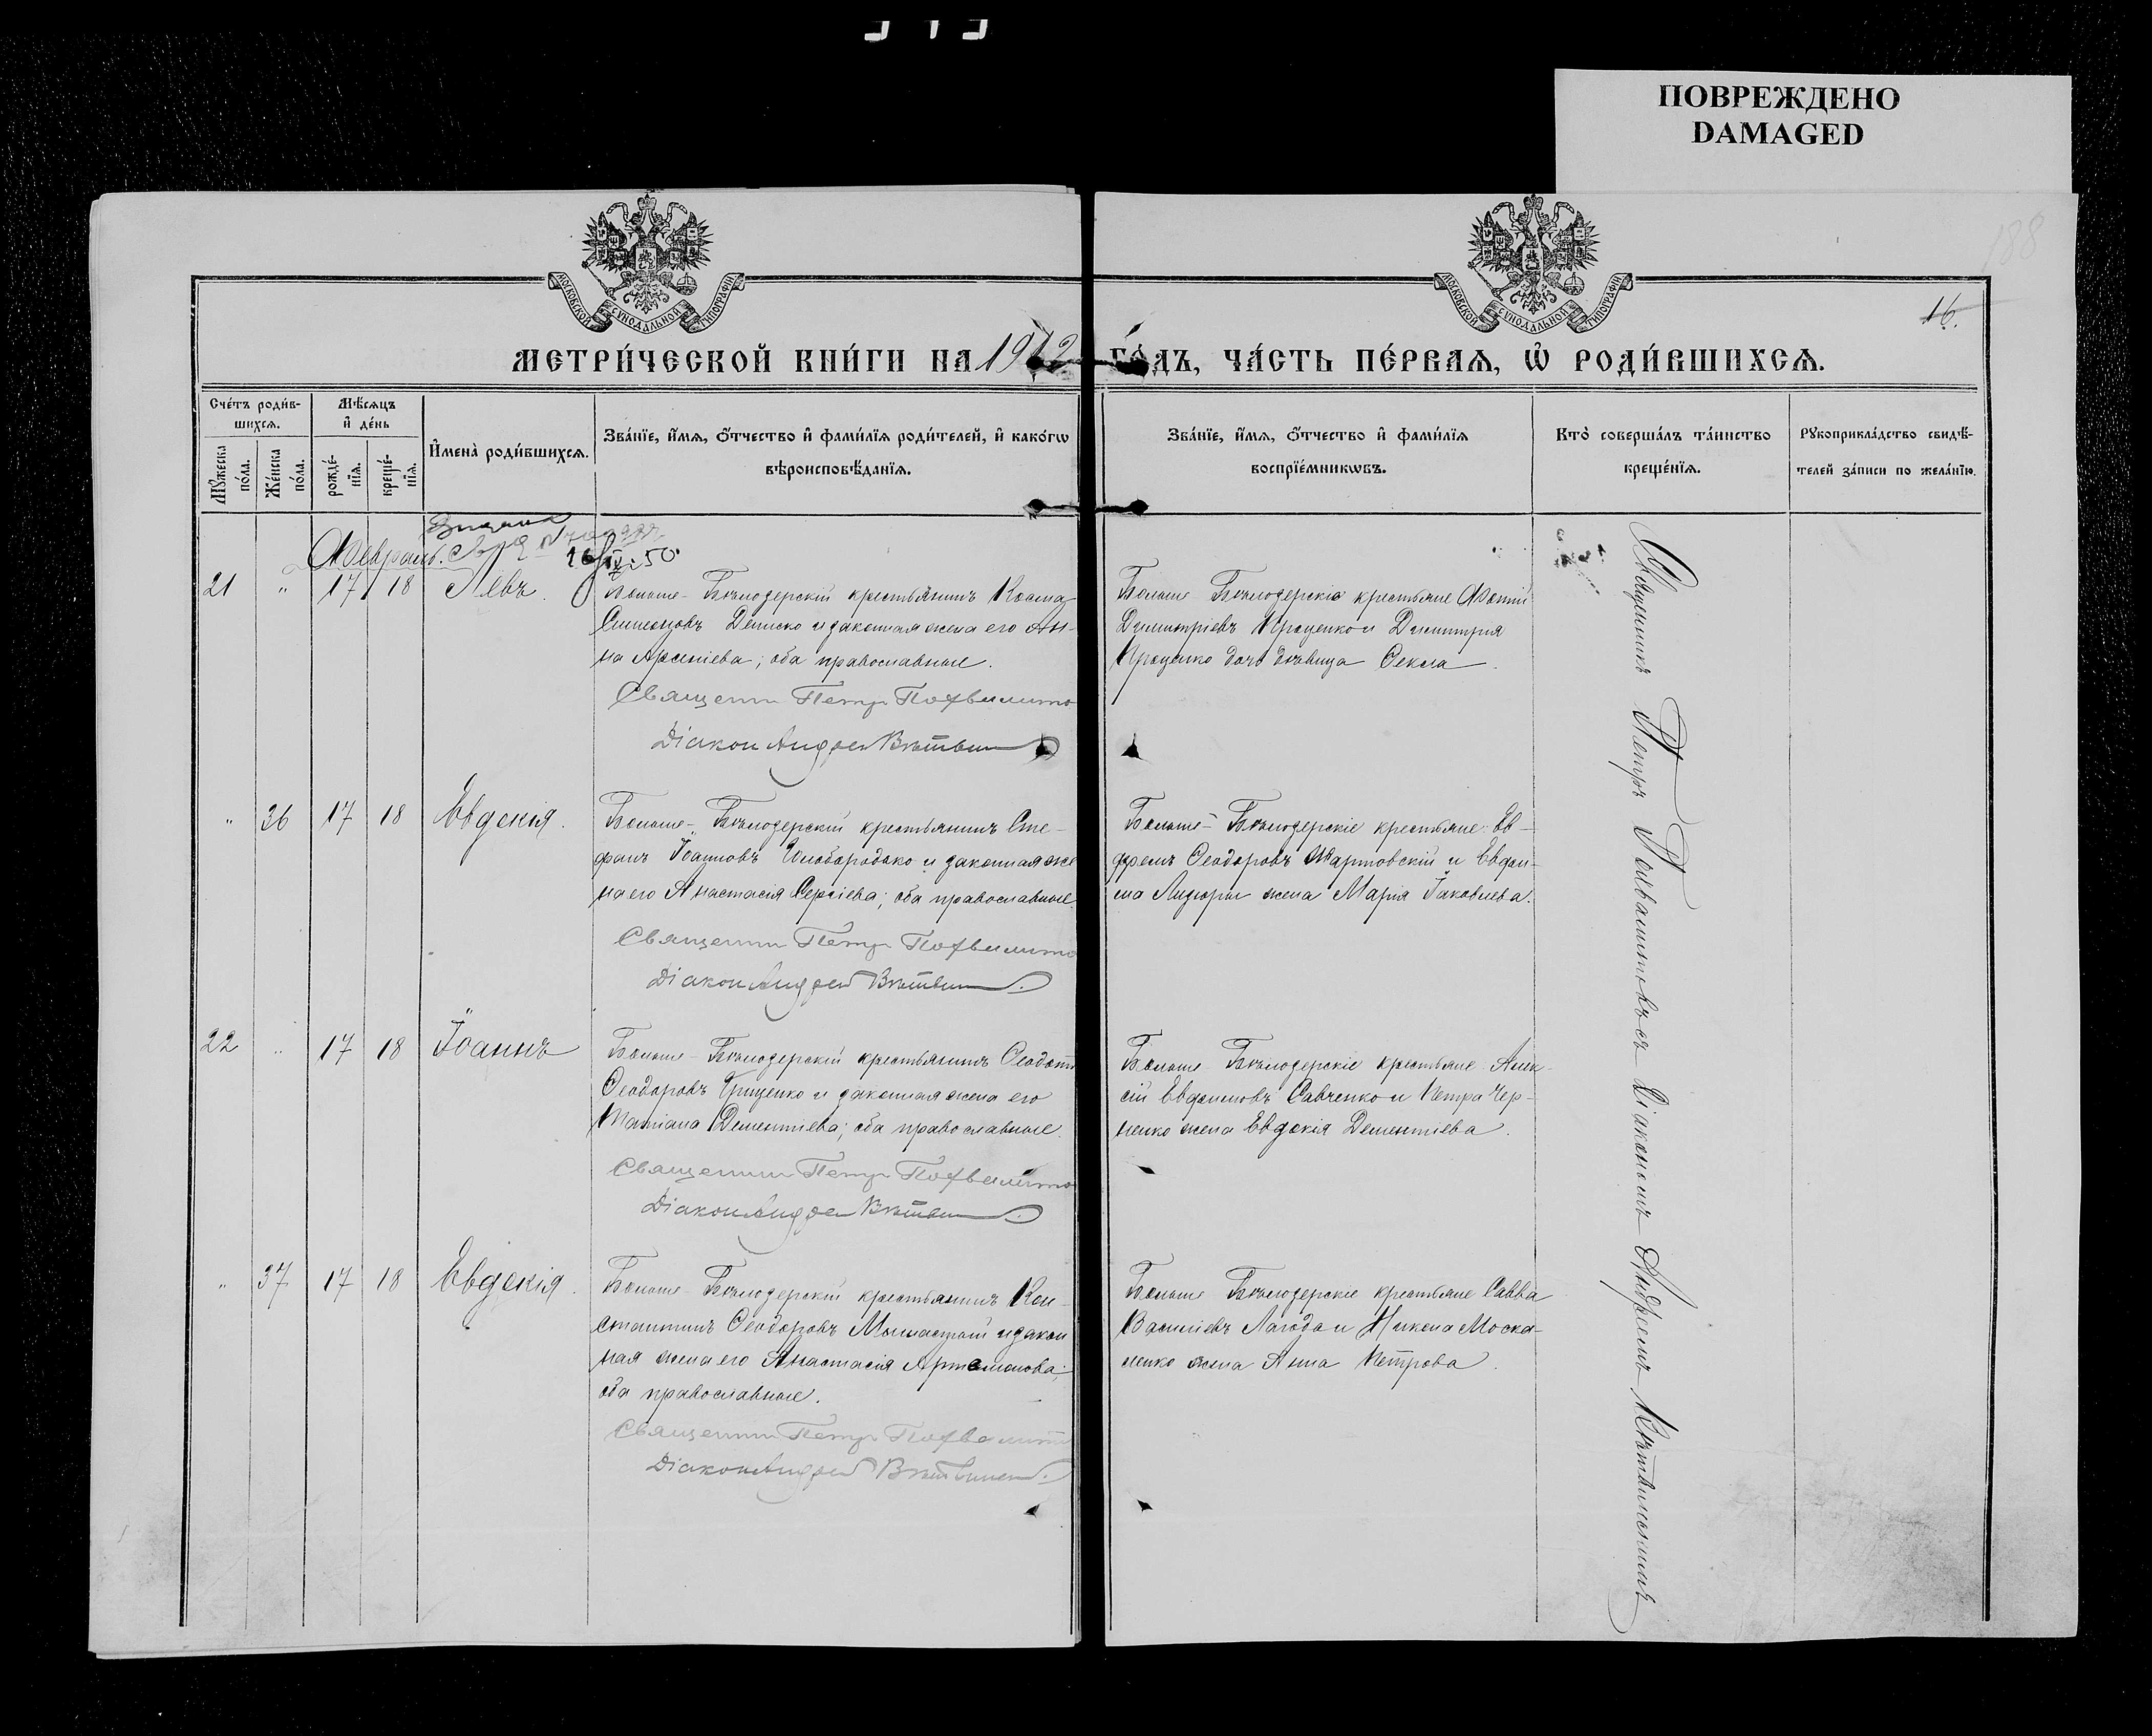 ПОВРЕЖДЕНО
DAMAGED
188
16.
МОСКОВСКОЙ СѴНОДАЛЬНОЙ ТИПОГРАФІИ
МОСКОВСКОЙ СѴНОДАЛЬНОЙ ТИПОГРАФІИ
МЕТРИ́ЧЕСКОЙ КНИ́ГИ НА 1912 ГО́ДЪ, ЧА́СТЬ ПЕ́РВАЯ, Ѡ РОДИ́ВШИХСЯ.
Сче́тъ роди́в-
шихся.
Мꙋ́жеска по́ла.
Же́нска по́ла.
Мѣ́сяцъ
и де́нь
рожде́-
нїя.
креще́-
нїя.
Имена̀ роди́вшихся.
Зва́нїе, и́мя, о́тчество и фами́лїя роди́телей, и како́гѡ
вѣроисповѣ́данїя.
Зва́нїе, и́мя, о́тчество и фами́лїя
воспрїе́мникѡвъ.
Кто̀ соверша́лъ та́инство
креще́нїя.
Рꙋкоприкла́дство свидѣ́-
телей за́писи по жела́нїю.
Февраль.
16/IV-50
21 " 17 18 Левъ.
Больше-Бѣлозерскій крестьянинъ Косма
Симеоновъ Дениско и законная жена его Ан-
на Арсеніева; оба православные.
Священн Петр Похвалито
Діакон Андрей
Больше Бѣлозерскіе крестьяне Фотій
Димитріевъ Проценко и Димитрія
Проценко дочь дѣвица Фекла.
" 36 17 18 Евдокія.
Больше-Бѣлозерскій крестьянинъ Сте-
фанъ Іоанновъ Голобородько и законная же
на его Анастасія Сергіева; оба православные.
Священн Петр Похвалито
Діакон Андрей
Больше-Бѣлозерскіе крестьяне: Ев-
фремъ Феодоровъ Мартовскій и Евфи-
ма жена Марія Іаковлева.
22 " 17 18 Іоаннъ
Больше-Бѣлозерскій крестьянинъ Феодотъ
Феодоровъ Грищенко и законная жена его
Татіана Дементіева; оба православные.
Священн Петр Похвалито
Діакон Андрей
Больше Бѣлозерскіе крестьяне Алек-
сій Евфимовъ Савченко и Петра Чер-
ненко жена Евдокія Дементіева.
" 37 17 18 Евдокія.
Больше-Бѣлозерскій крестьянинъ Кон-
стантинъ Феодоровъ и закон
ная жена его Анастасія Артемонова;
оба православные.
Священн Петр Похвалит
Діакон Андрей
Больше Бѣлозерскіе крестьяне Савва
Василіевъ Лагода и Никона Моска-
ленко жена Анна Петрова.
Священникъ Петръ Діакономъ Андреемъ